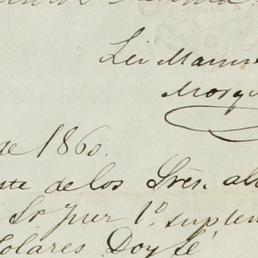 Lei Manu
Mosqu
de 1860.
ste de los Sres. al
Sr. Juez 1º suplen
Solares. Doy fé